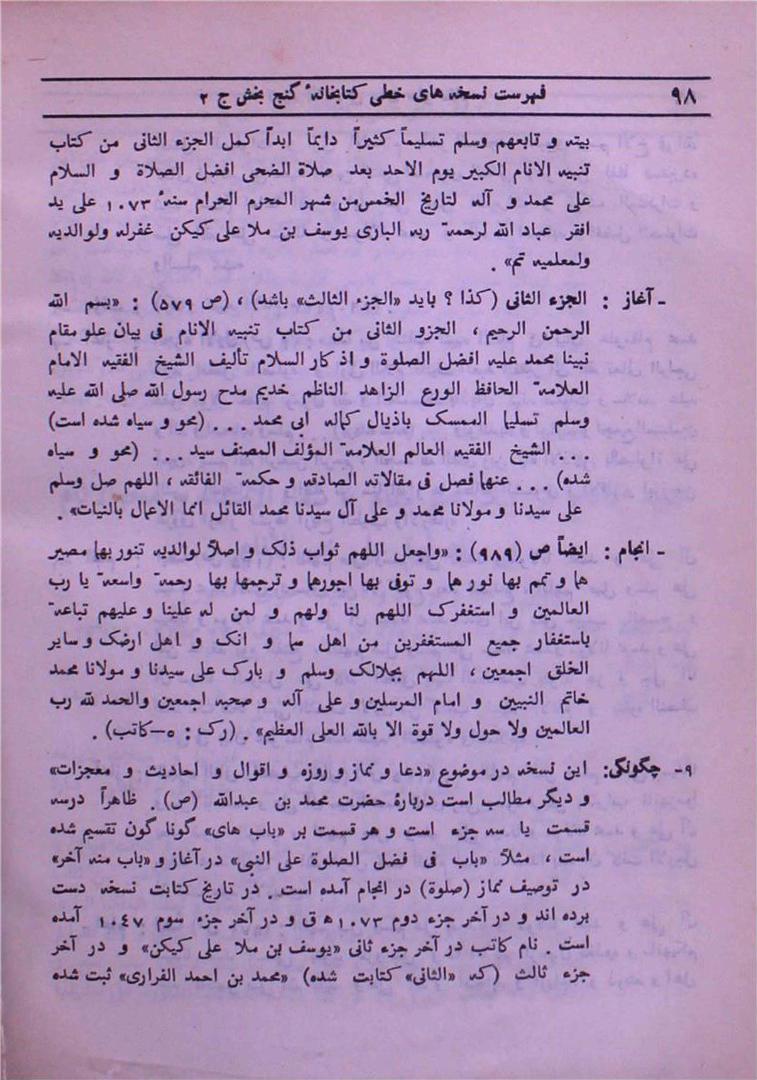 ۹۸ فهرست نسخه های خطی کتابخانهٔ گنج بخش ج ۲
بیته و تابعهم وسلم تسلیماً کثیراً دایماً ابداً کمل الجزء الثانی من کتاب
تنبیه الانام الکبیر یوم الاحد بعد صلاة الضحی افضل الصلاة و السلام
علی محمد و آله لتاریخ الخمس من شهر المحرم الحرام سنهٔ ۱۰۷۳ علی ید
افقر عباد الله لرحمة ربه الباری یوسف بن ملا علی کیکن غفرله ولوالدیه
ولمعلمیه تم» .
ـ آغاز : الجزء الثانی (کذا ؟ باید «الجزء الثالث» باشد) ، (ص ۵۷۹) : «بسم الله
الرحمن الرحیم ، الجزو الثانی من کتاب تنبیه الانام فی بیان علو مقام
نبینا محمد علیه افضل الصلوة و اذ کار السلام تألیف الشیخ الفقیه الامام
العلامة الحافظ الورع الزاهد الناظم خدیم مدح رسول الله صلی الله علیه
وسلم تسلیما الممسک باذیال کماله ابی محمد ... (محو و سیاه شده است)
... الشیخ الفقیه العالم العلامة المؤلف المصنف سید ... (محو و سیاه
شده) ... عنها فصل فی مقالاته الصادقه و حکمة الفائقه ، اللهم صل وسلم
علی سیدنا و مولانا محمد و علی آل سیدنا محمد القائل انما الاعمال بالنیات» .
ـ انجام : ایضاً ص (۹۸۹) : «واجعل اللهم ثواب ذلک و اصلاً لوالدیه تنور بها مصیر
هما و تمم بها نور هما و توفی بها اجورهما و ترجمها بها رحمة واسعة یا رب
العالمین و استغفرک اللهم لنا ولهم و لمن له علینا و علیهم تباعة
باستغفار جمیع المستغفرین من اهل سما و انک و اهل ارضک و سایر
الخلق اجمعین ، اللهم بجلالک وسلم و بارک علی سیدنا و مولانا محمد
خاتم النبیین و امام المرسلین و علی آله و صحبه اجمعین والحمد لله رب
العالمین ولا حول ولا قوة الا بالله العلی العظیم» . (رک : ۵-کاتب) .
۹- چگونگی: این نسخه در موضوع «دعا و نماز و روزه و اقوال و احادیث و معجزات»
و دیگر مطالب است دربارهٔ حضرت محمد بن عبدالله (ص) . ظاهراً درسه
قسمت یا سه جزء است و هر قسمت بر «باب های» گونا گون تقسیم شده
است ، مثلاً «باب فی فضل الصلوة علی النبی» در آغاز و «باب منه آخر»
در توصیف نماز (صلوة) در انجام آمده است . در تاریخ کتابت نسخه دست
برده اند و در آخر جزء دوم ۱۰۷۳ ه ق و در آخر جزء سوم ۱۰۴۷ آمده
است . نام کاتب در آخر جزء ثانی «یوسف بن ملا علی کیکن» و در آخر
جزء ثالث (که «الثانی» کتابت شده) «محمد بن احمد الفراری» ثبت شده